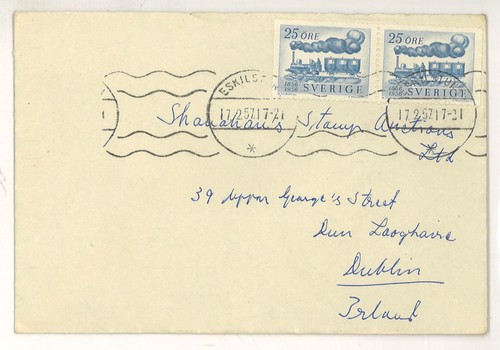 25 ÖRE 25 ÖRE
1856 1956 SVERIGE 1856 1956 SVERIGE
17.2.57.17-21 17.2.57.17-21
Shanahan's Stamp Auctions
Ltd
39 upper George's Street
Dun Laoghaire
Dublin
Irland